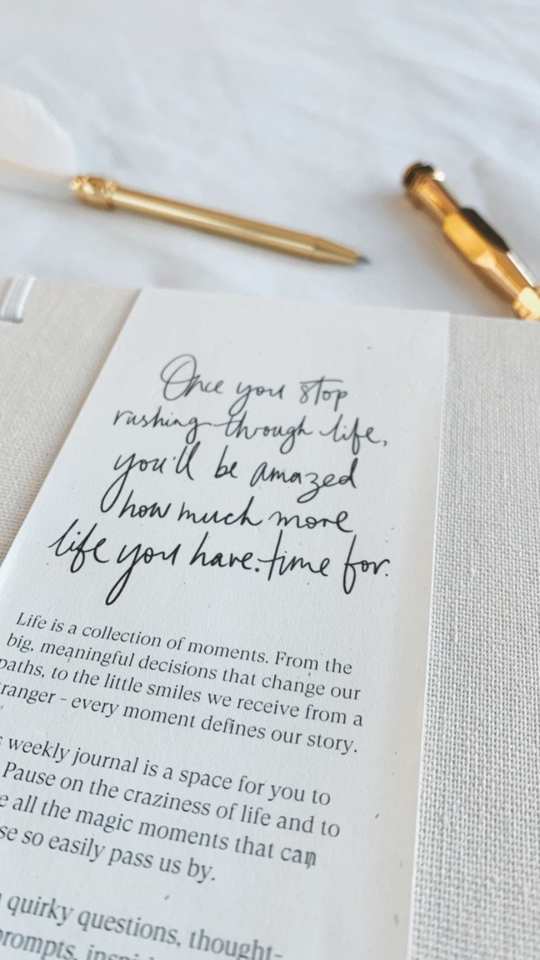 Once you stop
rushing through life,
you'll be amazed
how much more
life you have time for.
Life is a collection of moments. From the
big, meaningful decisions that change our
paths, to the little smiles we receive from a
- every moment defines our story.
weekly journal is a space for you to
Pause on the craziness of life and to
all the magic moments that can
so easily pass us by.
quirky questions, thought-
prompts,